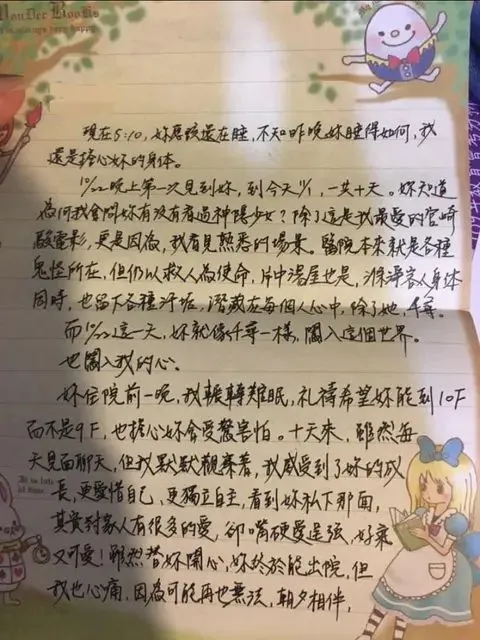 WonDer BooKs
is always very happy
現在5:10,妳應該還在睡,不知昨晚妳睡得如何,我
還是擔心妳的身体。
10/22晚上第一次見到妳,到今天11/1,一共十天。妳知道
為何我會問妳有沒有看過神隱少女?除了這是我最愛的宮崎
駿電影,更是因為,我看見熟悉的場景。醫院本來就是各種
鬼怪所在,但仍以救人為使命,片中湯屋也是,滌淨客人身体
同時,也留下各種汙垢,潛藏在每個人心中,除了她,千尋。
而10/22這一天,妳就像千尋一樣,闖入這個世界。
也闖入我的心。
妳住院前一晚,我輾轉難眠,礼禱希望妳能到10F
而不是9F,也擔心妳會受驚害怕。十天來,雖然每
天見面聊天,但我默默觀察著,我感受到了妳的成
長,更愛惜自己、更獨立自主,看到妳私下那面,
其實對家人有很多的愛,卻嘴硬愛逞強,好氣
又可愛!雖然替妳開心,妳終於能出院,但
我也心痛,因為可能再也無法,朝夕相伴,